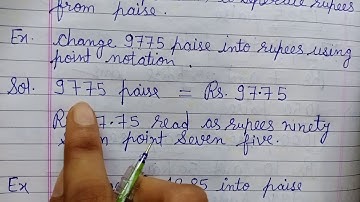 from paise.
Ex. Change 9775 paise into rupees using
point notation.
Sol. 9775 paise = Rs. 97.75
7.75 read as rupees ninety
point seven five.
Ex into paise